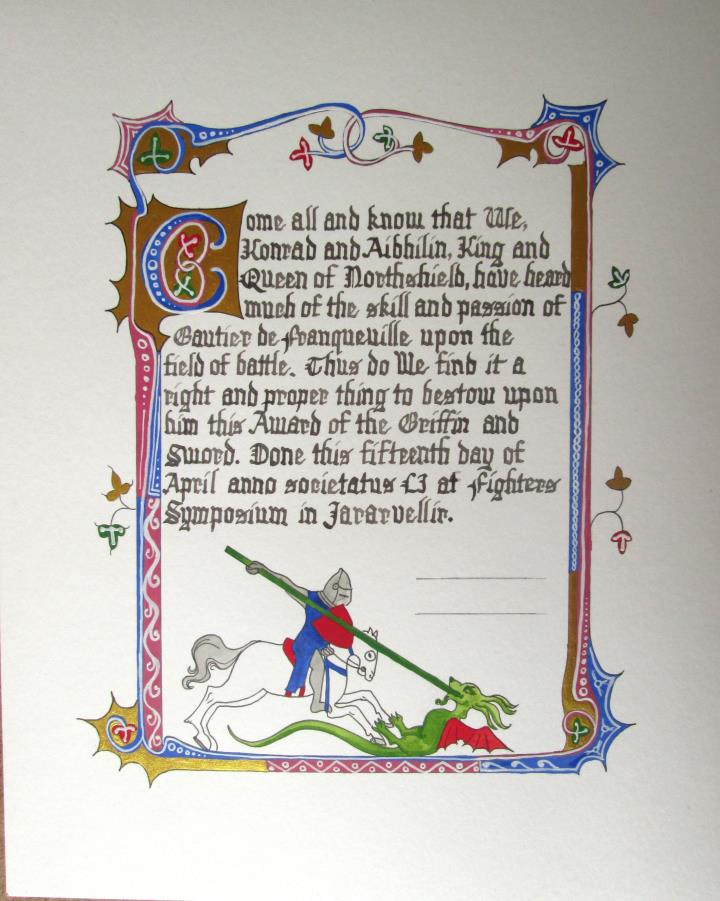 Come all and know that We,
Konrad and Aibhilin, King and
Queen of Northshield, have heard
much of the skill and passion of
Gautier de Franqueville upon the
field of battle. Thus do We find it a
right and proper thing to bestow upon
him this Award of the Griffin and
Sword. Done this fifteenth day of
April anno societatus LI at Fighters
Symposium in Jararvellir.